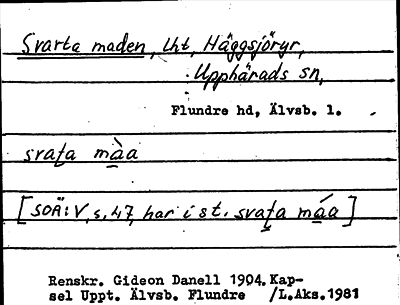 Svarta maden, lht, Häggsjöryr,
Upphärads sn,
Flundre hd, Älvsb. l.
svaṯa mà̱a
[SOÄ: V, s. 47, har i st. svaṯa má̱a]
Renskr. Gideon Danell 1904. Kap-
sel Uppt. Älvsb. Flundre /L.Aks.1981